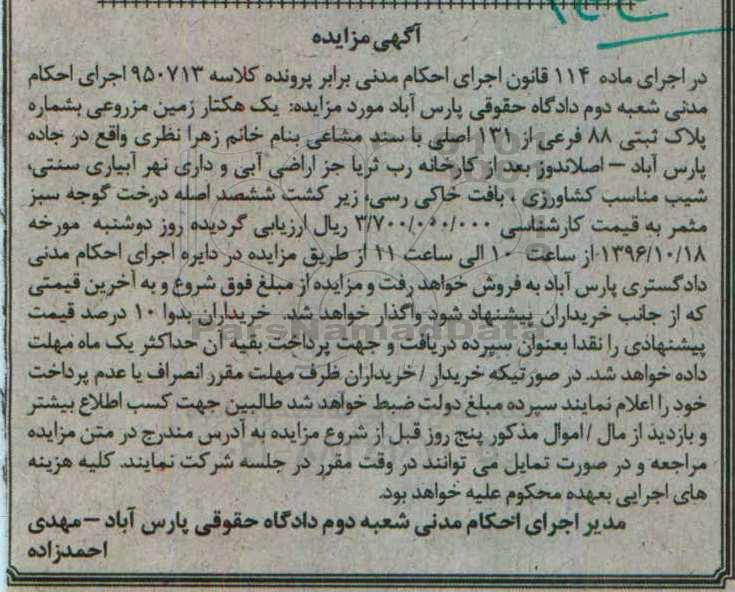 آگهی مزایده
در اجرای ماده ۱۱۴ قانون اجرای احکام مدنی برابر پرونده کلاسه ۹۵۰۷۱۳ اجرای احکام
مدنی شعبه دوم دادگاه حقوقی پارس آباد مورد مزایده: یک هکتار زمین مزروعی بشماره
پلاک ثبتی ۸۸ فرعی از ۱۳۱ اصلی با سند مشاعی بنام خانم زهرا نظری واقع در جاده
پارس آباد – اصلاندوز بعد از کارخانه رب ثریا جز اراضی آبی و داری نهر آبیاری سنتی،
شیب مناسب کشاورزی ، بافت خاکی رسی، زیر کشت ششصد اصله درخت گوجه سبز
مثمر به قیمت کارشناسی ۳/۷۰۰/۰۰۰/۰۰۰ ریال ارزیابی گردیده روز دوشنبه مورخه
۱۳۹۶/۱۰/۱۸ از ساعت ۱۰ الی ساعت ۱۱ از طریق مزایده در دایره اجرای احکام مدنی
دادگستری پارس آباد به فروش خواهد رفت و مزایده از مبلغ فوق شروع و به آخرین قیمتی
که از جانب خریداران پیشنهاد شود واگذار خواهد شد. خریداران بدوا ۱۰ درصد قیمت
پیشنهادی را نقدا بعنوان سپرده دریافت و جهت پرداخت بقیه آن حداکثر یک ماه مهلت
داده خواهد شد. در صورتیکه خریدار /خریداران ظرف مهلت مقرر انصراف یا عدم پرداخت
خود را اعلام نمایند سپرده مبلغ دولت ضبط خواهد شد طالبین جهت کسب اطلاع بیشتر
و بازدید از مال /اموال مذکور پنج روز قبل از شروع مزایده به آدرس مندرج در متن مزایده
مراجعه و در صورت تمایل می توانند در وقت مقرر در جلسه شرکت نمایند. کلیه هزینه
های اجرایی بعهده محکوم علیه خواهد بود.
مدیر اجرای احکام مدنی شعبه دوم دادگاه حقوقی پارس آباد –مهدی
احمدزاده
ParsNamadData